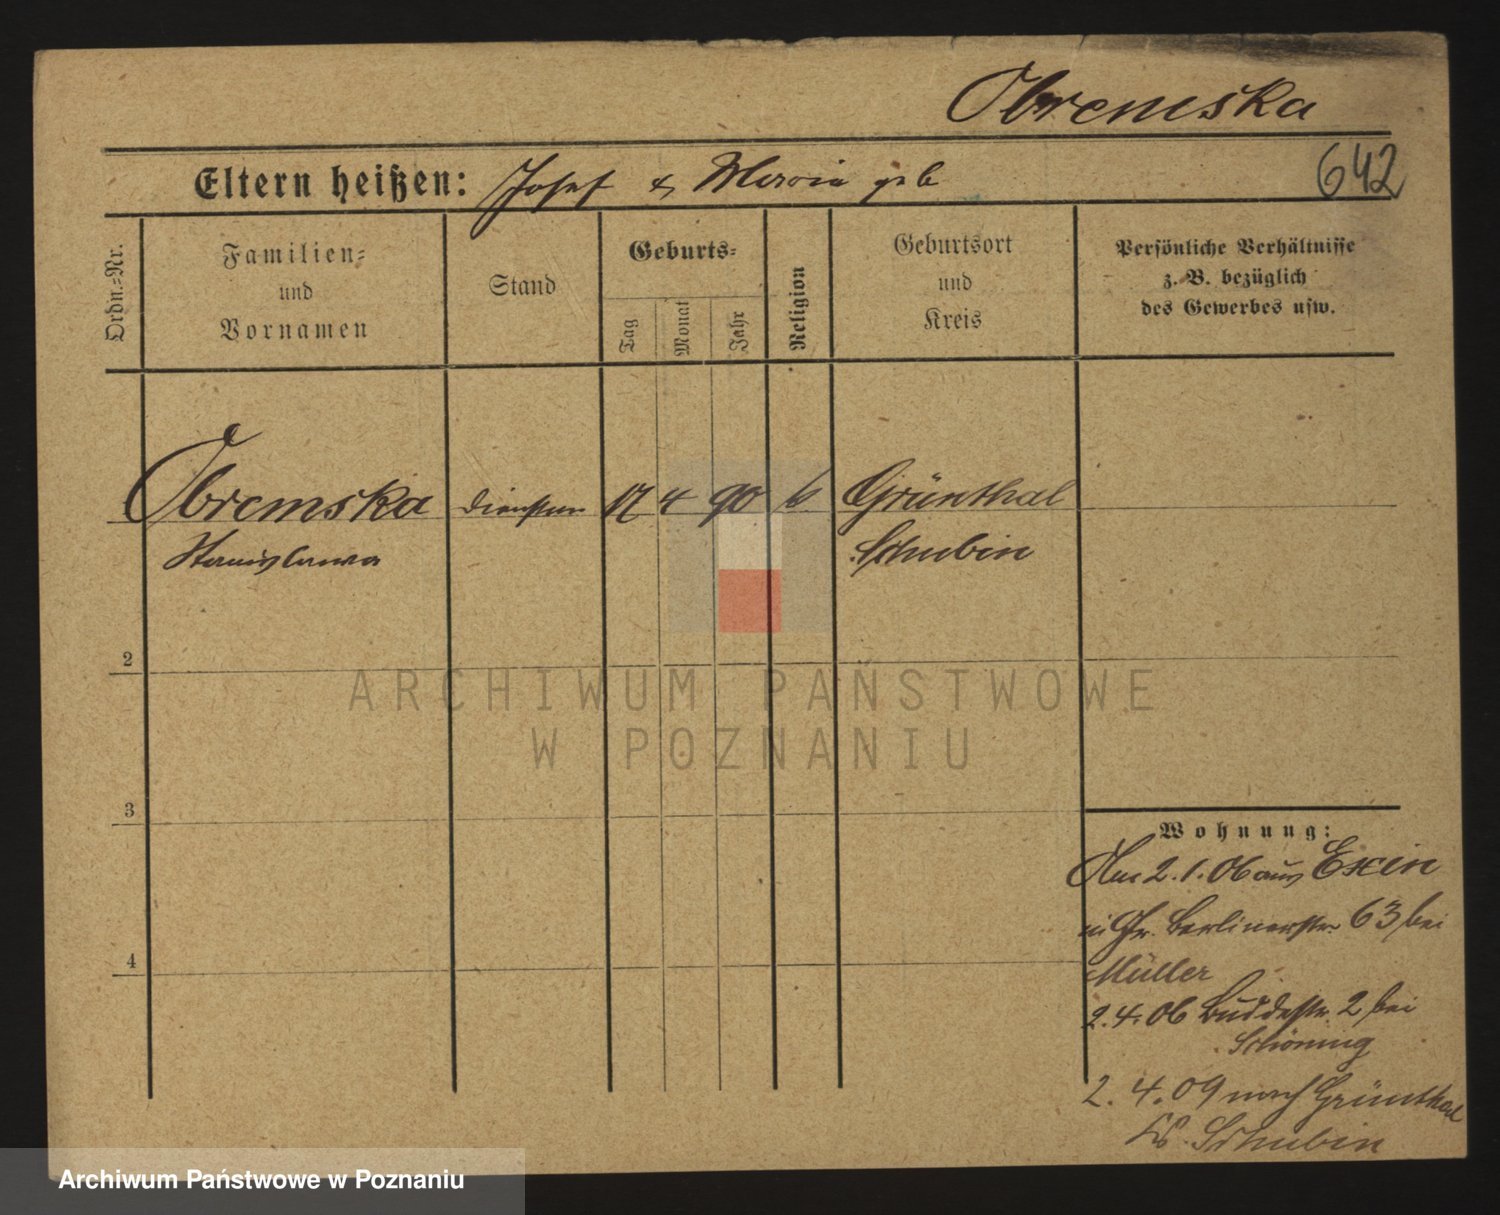 Obremska
642
Eltern heißen: Josef & Maria geb
Ordn.-Nr.
Familien-
und
Vornamen
Stand
Geburts-
Tag
Monat
Jahr
Religion
Geburtsort
und
Kreis
Persönliche Verhältnisse
z. B. bezüglich
des Gewerbes usw.
Obremska 17 4 90 k Grünthal
Stanislawa Schubin
2
3
4
Wohnung:
Am 2.1.06 aus Exin
in Gr. Berlinerstr. 63 bei
Müller
2.4.06 Buddestr. 2 bei
Schöning
2.4.09 nach Grünthal
Schubin
ARCHIWUM PAŃSTWOWE
W POZNANIU
Archiwum Państwowe w Poznaniu